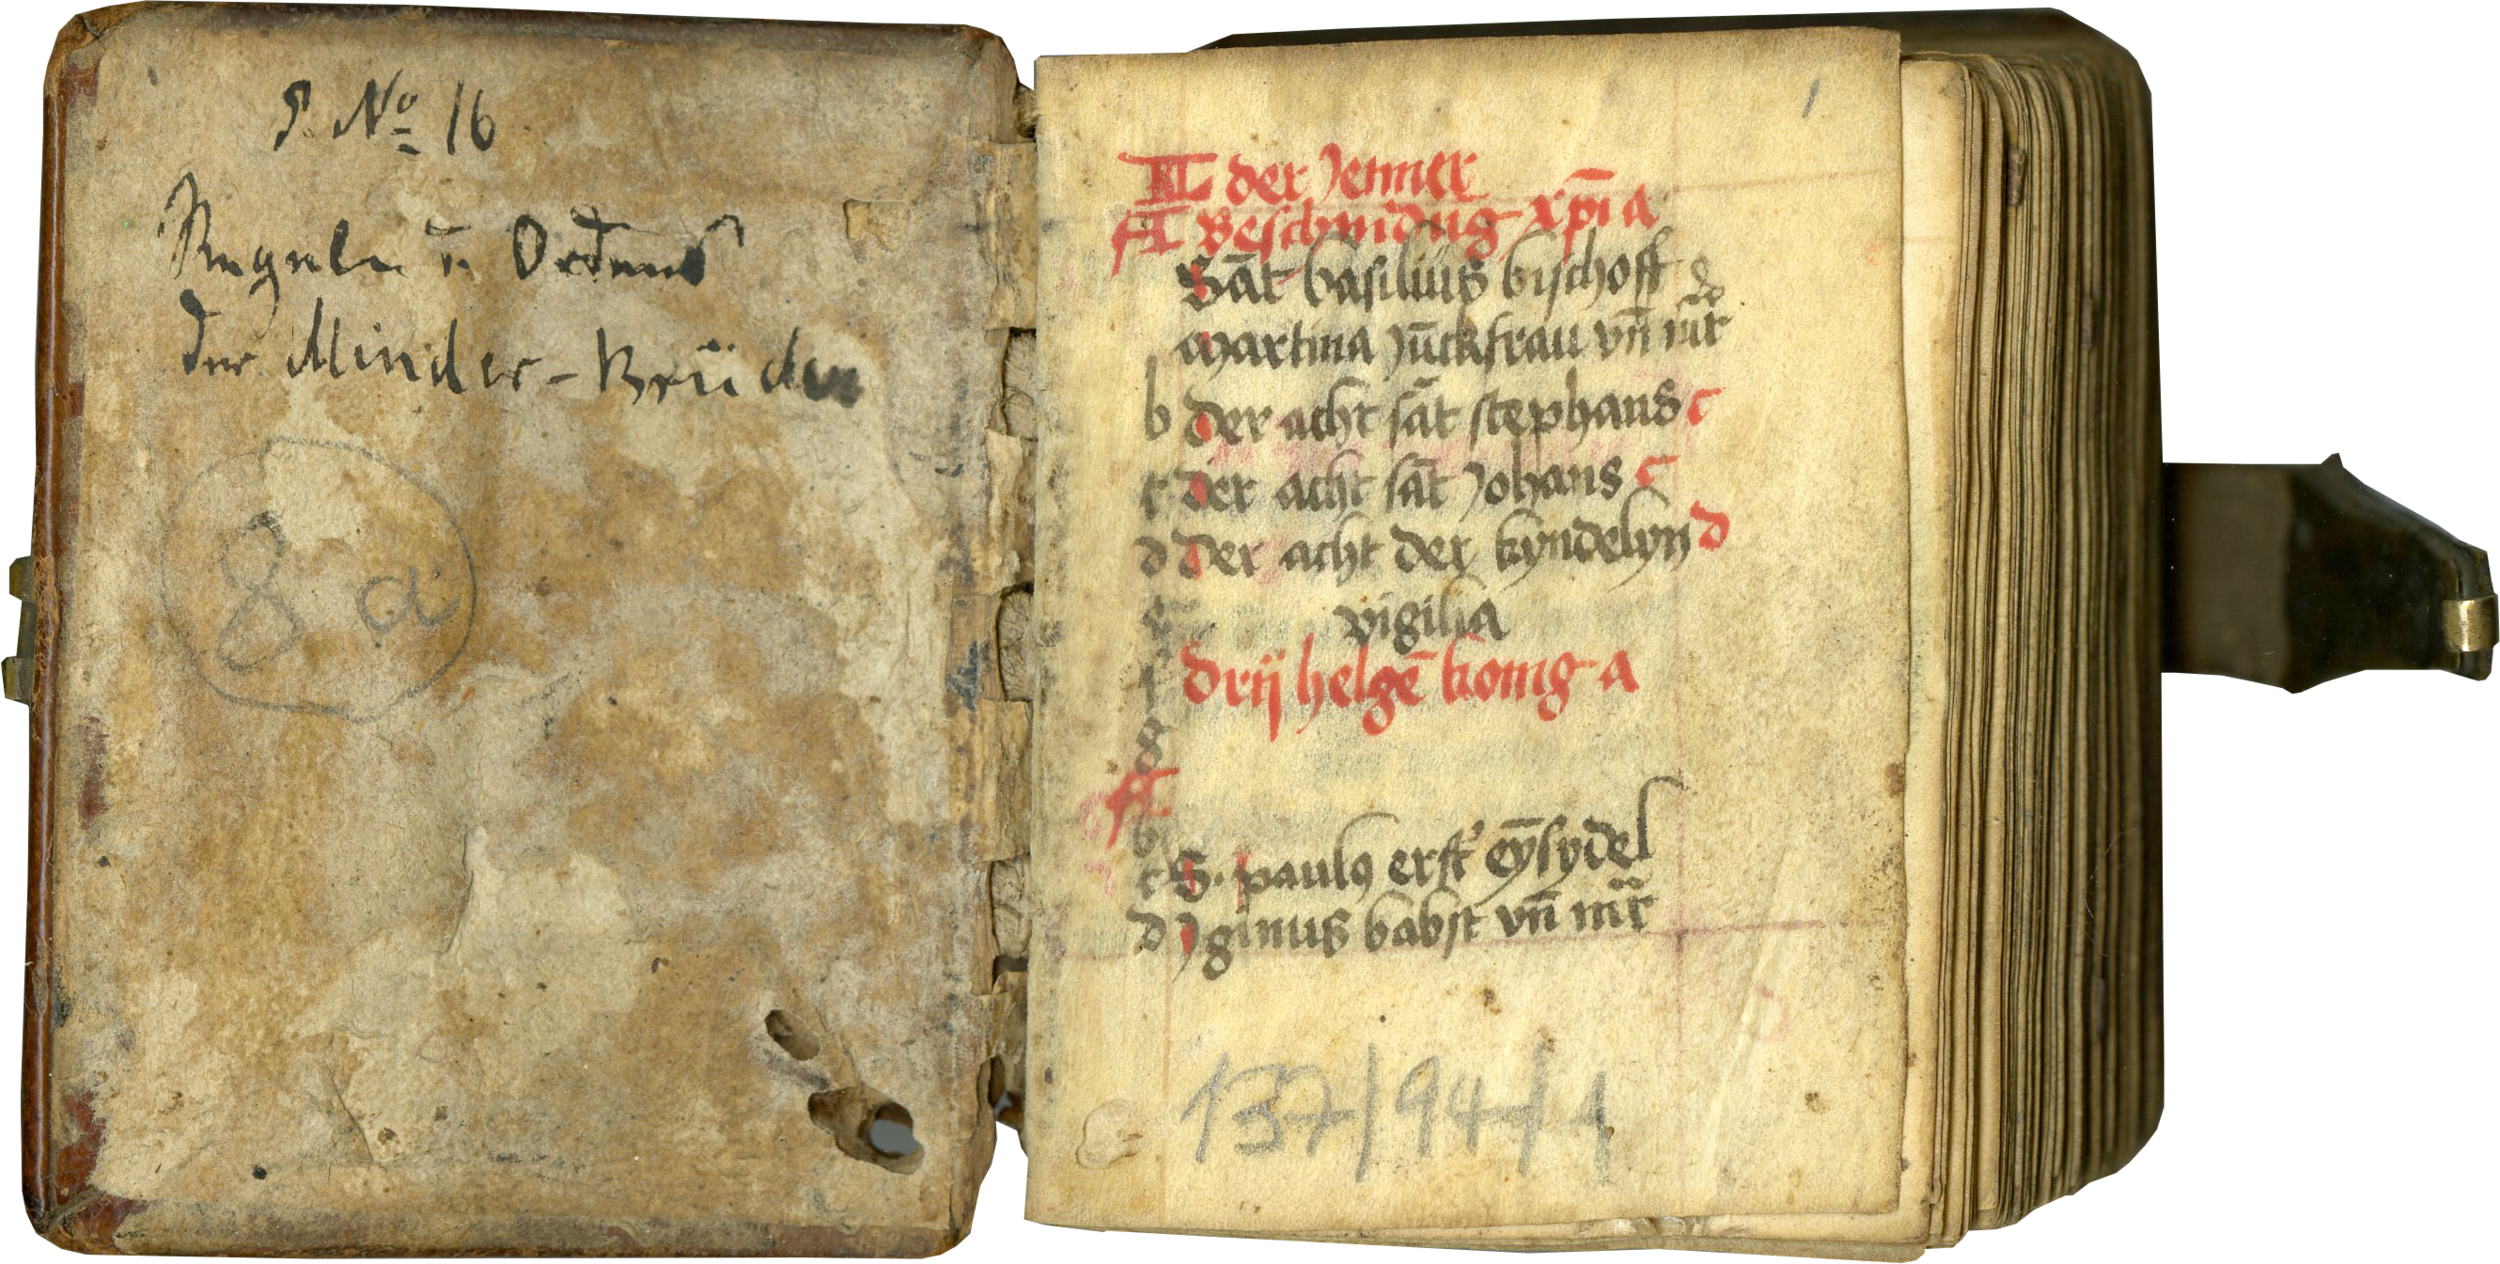 S. No 16
Regula u. Ordnung
der Minder-Brüder
8 a
1
KL der Jenner
A Beschnidūg xp̄i a
Sāt basilius bischoff
martina Jūckfrau vn̄ mr̄
b der acht sāt stephans c
c der acht sāt Johans c
d der acht der kyndelyn d
e vigilia
f drij helgē konig a
g
A
b
c S. paulus erst eȳsydel
d Jginus babst vn̄ mr̄
137/94/1